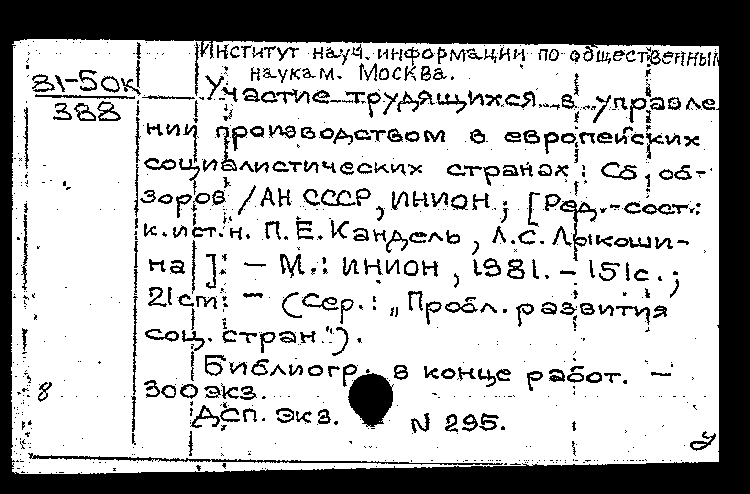 Институт науч. информации по общественным
наукам. Москва.
81-50к
388
Участие трудящихся в управле
нии производством в европейских
социалистических странах: Сб. об-
зоров / АН СССР, ИНИОН; [Ред.-сост.:
к.ист.н. П. Е. Кандель, Л.С. Лыкоши-
на]. — М.: ИНИОН, 1981. — 151с.;
21см. — (Сер.: „Пробл. развития
соц. стран").
Библиогр. в конце работ. —
300 экз.
8
ДСП. Экз. N 295.
У